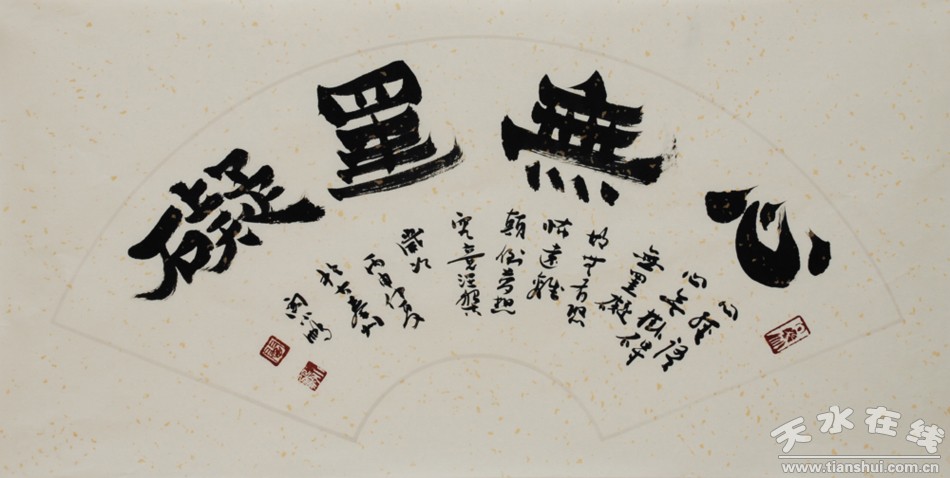 心無罣礙
心无掛碍
無罣礙
故無有恐
怖遠離
顛倒夢想
究竟涅槃
歲次
丙申仲夏
天水在线
www.tianshui.com.cn